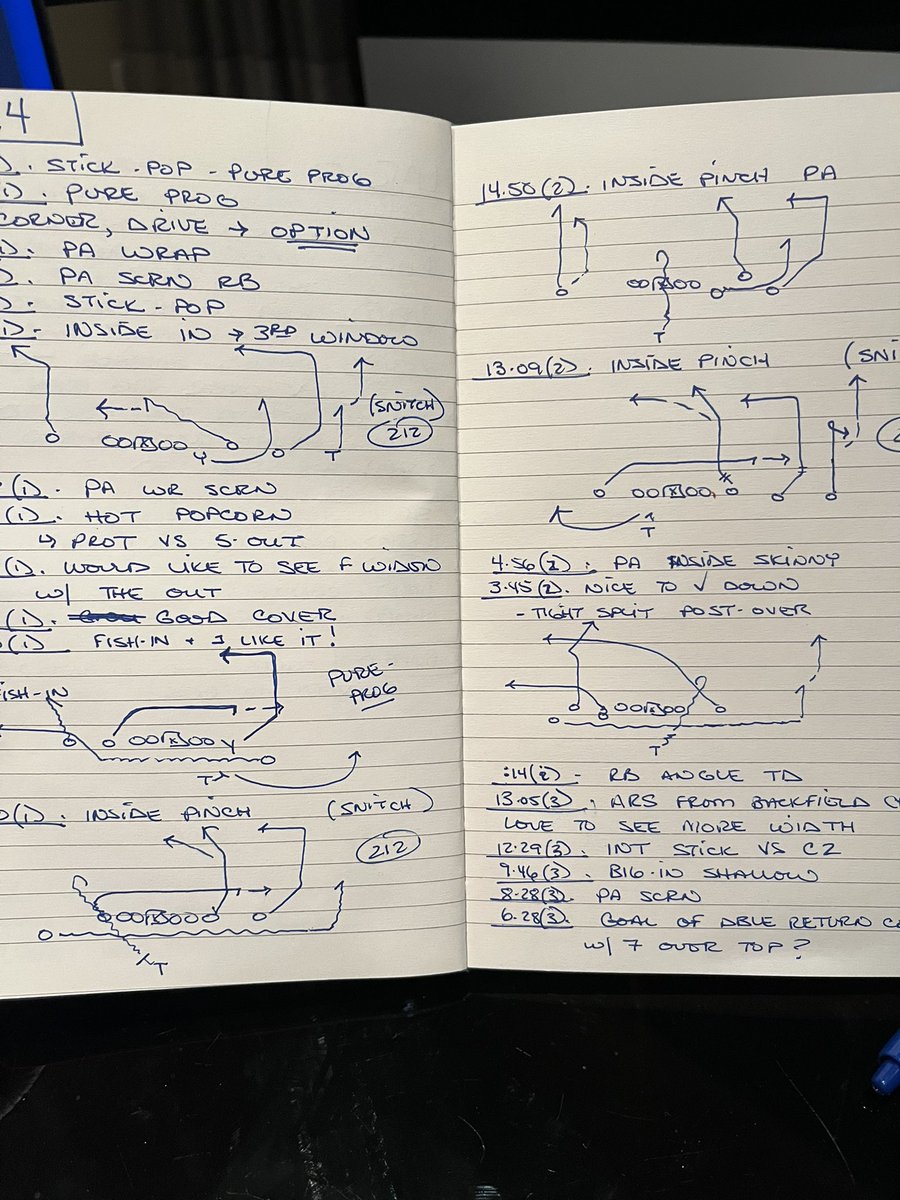 .4
). STICK-POP - PURE PROG
1). PURE PROG
CORNER, DRIVE → OPTION
1). PA WRAP
). PA SCRN RB
). STICK-POP
1)- INSIDE IN → 3RD WINDOW
(SNITCH)
212
Y
T
(1). PA WR SCRN
(1). HOT POPCORN
↳ PROT VS 5-OUT
(1). WOULD LIKE TO SEE F WIDON
W/ THE OUT
(1). GOOD COVER
(1) FISH-IN + I LIKE IT!
FISH-IN
PURE-
PROG
Y
T
(1). INSIDE PINCH (SNITCH)
212
T
14.50(2). INSIDE PINCH PA
T
13.09(2). INSIDE PINCH (SNI
T
4.56(2). PA INSIDE SKINNY
3.45(2). NICE TO √ DOWN
- TIGHT SPLIT POST-OVER
T
:14(2)- RB ANGLE TD
13.05(3). ARS FROM BACKFIELD
LOVE TO SEE MORE WIDTH
12.29(3). INT STICK VS C2
9.46(3). BIG-IN SHALLOW
8.28(3). PA SCRN
6.28(3). GOAL OF DBLE RETURN
W/ 7 OVER TOP?